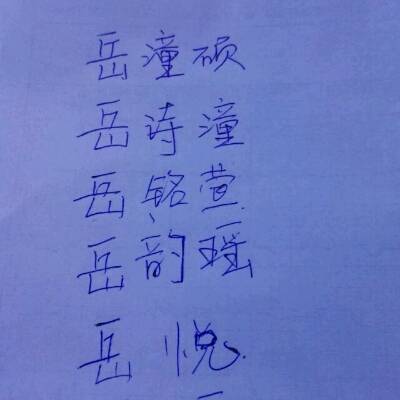 岳潼硕
岳诗潼
岳铭萱
岳韵瑶
岳悦